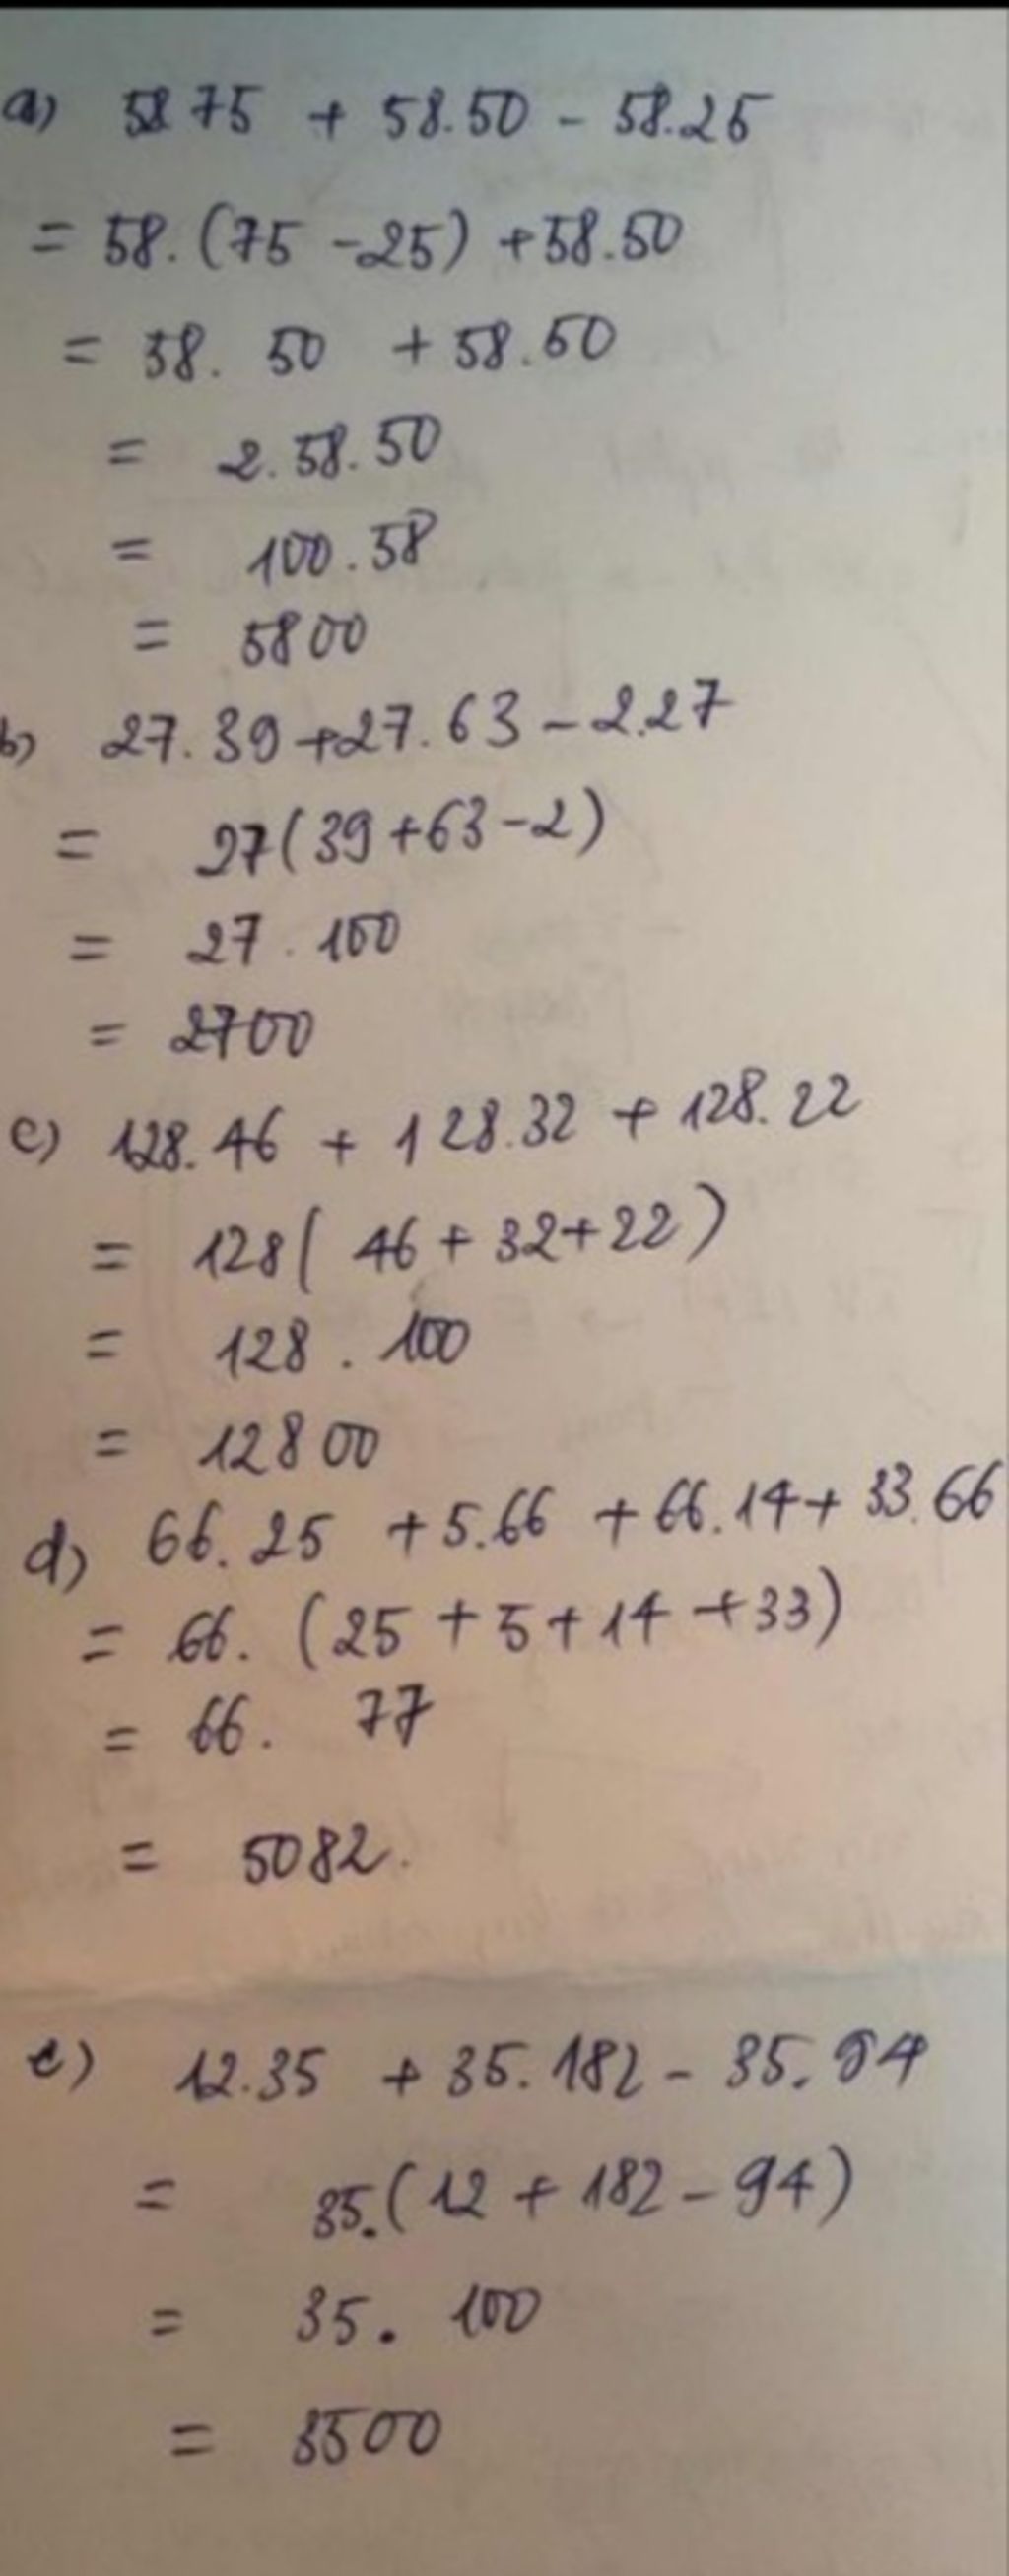 a) 58.75 + 58.50 - 58.25
= 58.(75 - 25) + 58.50
= 58. 50 + 58.50
= 2.58.50
= 100.58
= 5800
b) 27.39 + 27.63 - 2.27
= 27(39+63-2)
= 27.100
= 2700
c) 128.46 + 128.32 + 128.22
= 128( 46 + 32+22)
= 128 . 100
= 12800
d) 66.25 + 5.66 + 66.14 + 33.66
= 66. (25 + 5 + 14 + 33)
= 66. 77
= 5082.
e) 12.35 + 35.182 - 35.94
= 35.(12 + 182 - 94)
= 35. 100
= 3500